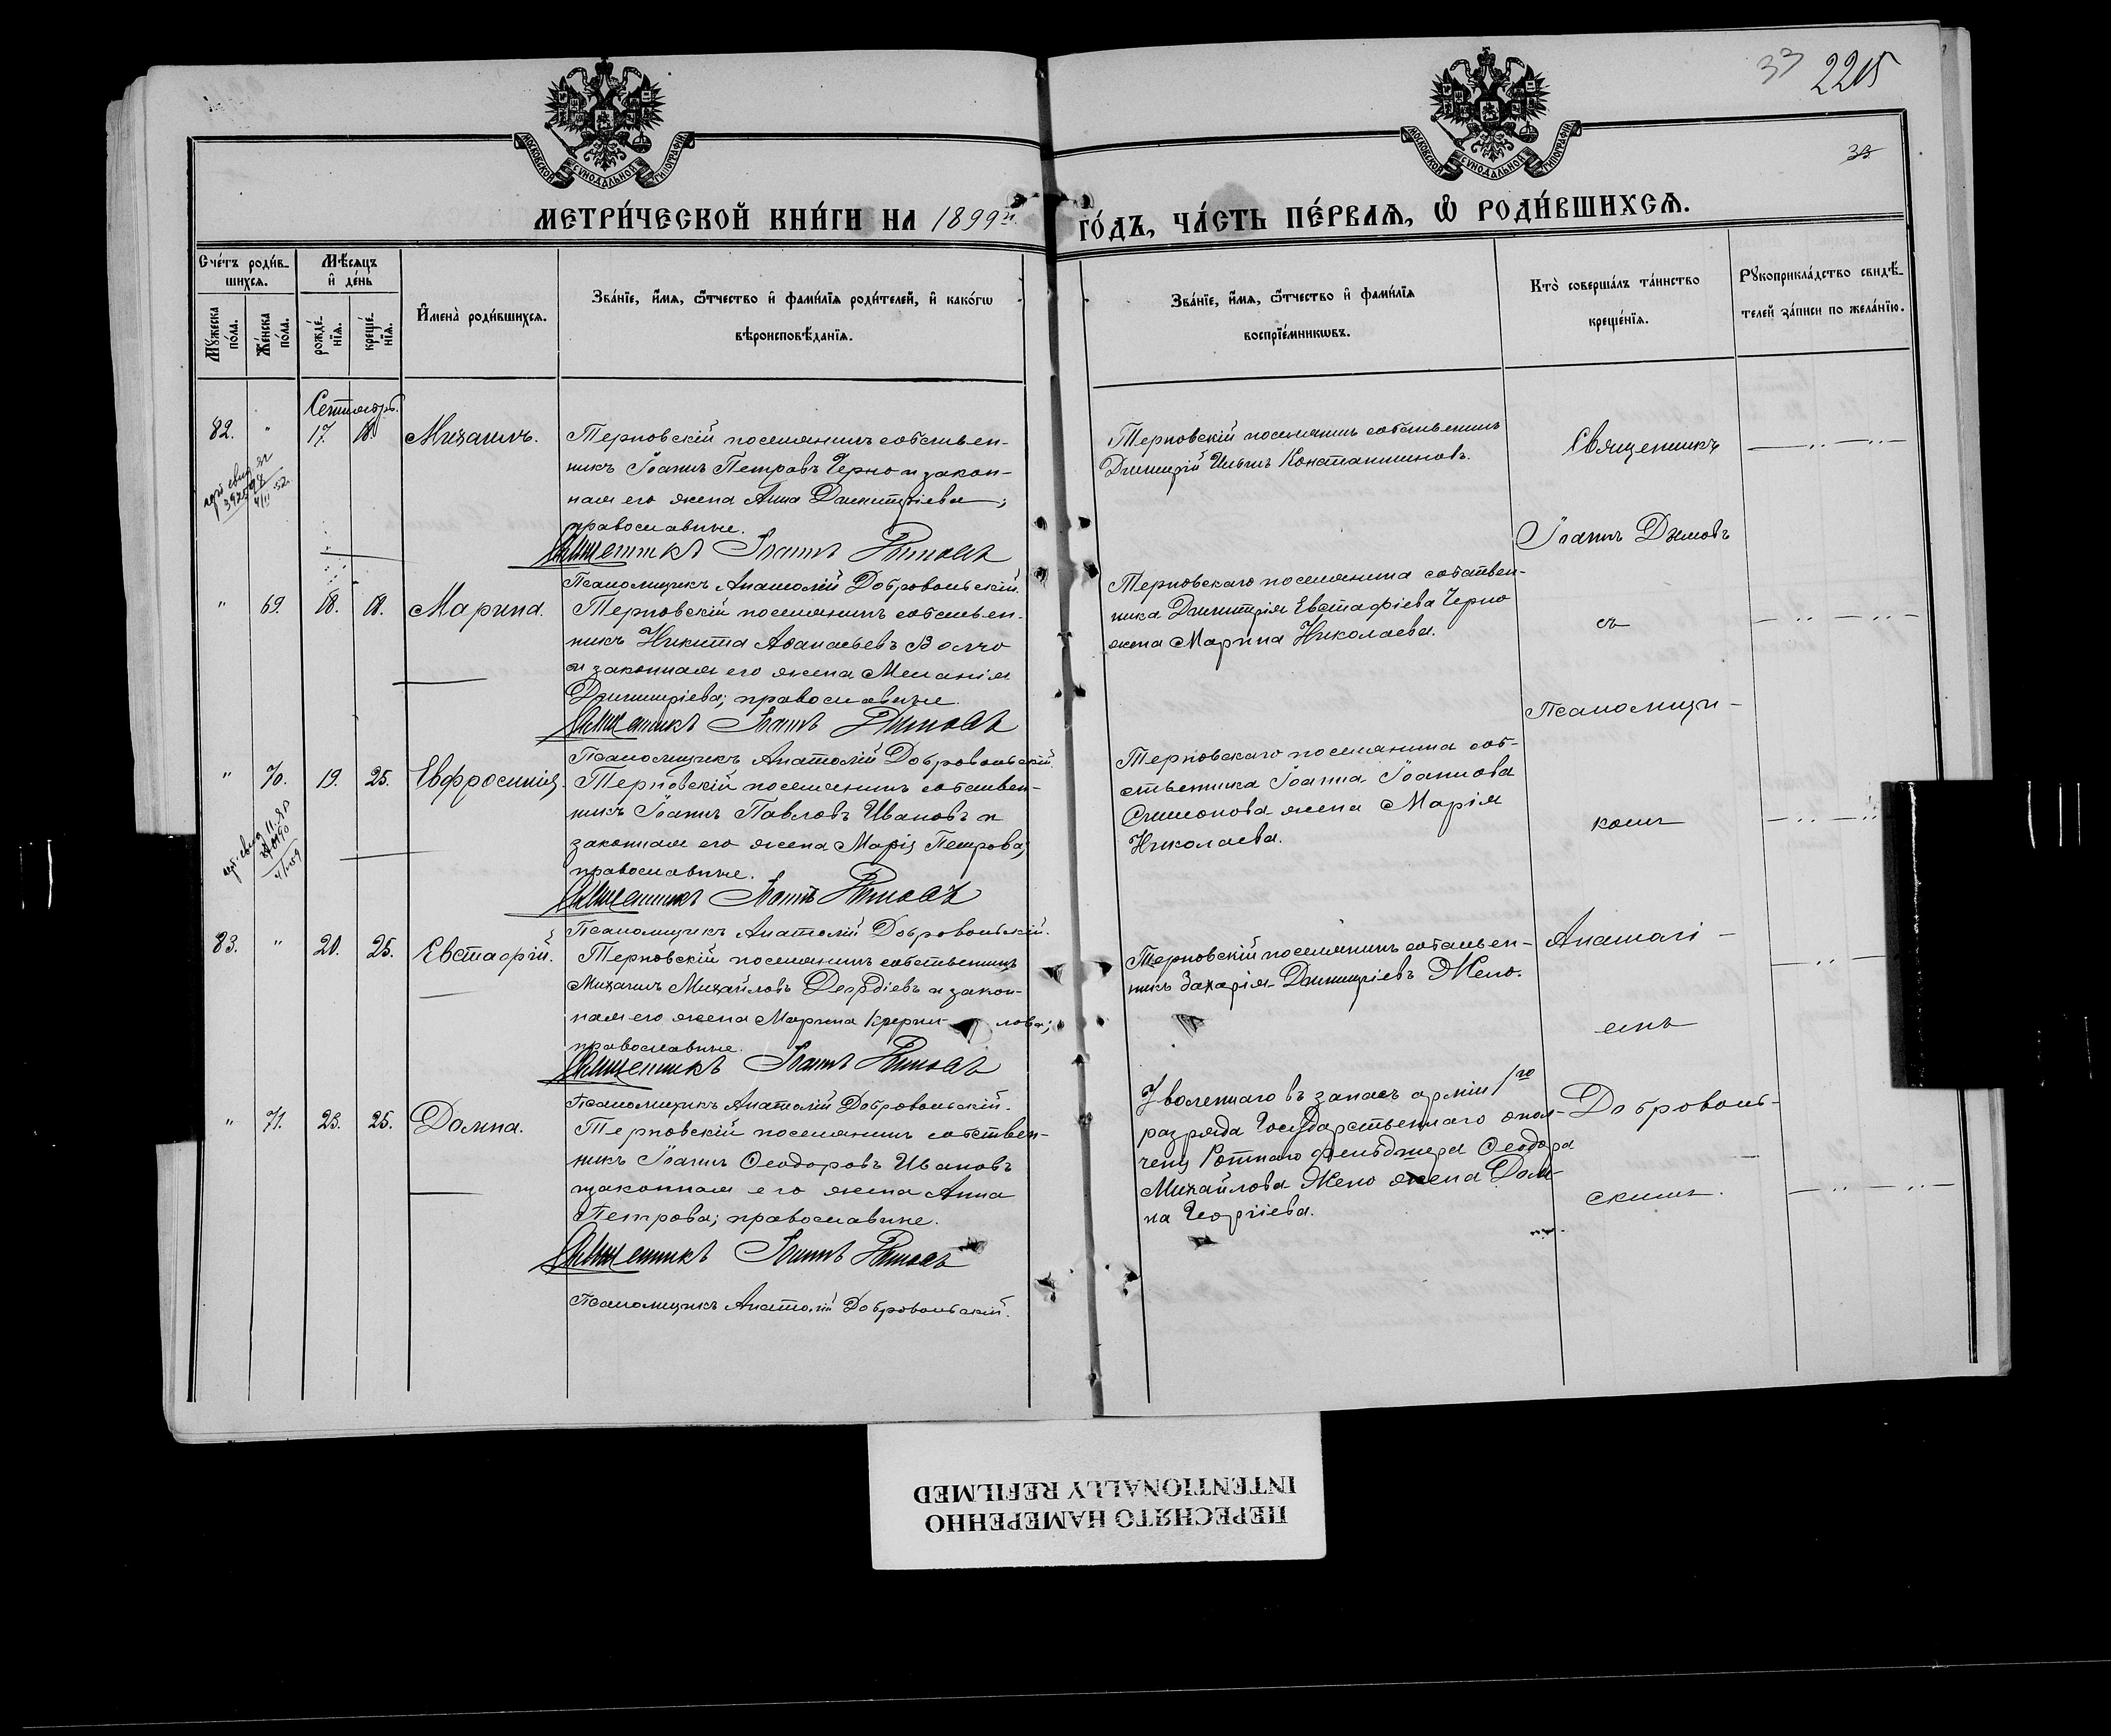 33 2215
33
МОСКОВСКОЙ СѴНОДАЛЬНОЙ ТИПОГРАФІИ
МОСКОВСКОЙ СѴНОДАЛЬНОЙ ТИПОГРАФІИ
МЕТРИ́ЧЕСКОЙ КНИ́ГИ НА 1899й. ГО́ДЪ, ЧА́СТЬ ПЕ́РВАѦ, Ѽ РОДИ́ВШИХСѦ.
Сче́тъ роди́в-
шихсѧ.
Мѣ́сѧцъ
и҆ де́нь
Мꙋ́жеска
по́ла.
Же́нска
по́ла.
рожде́-
нїѧ.
креще́-
нїѧ.
И҆мена̀ роди́вшихсѧ.
Зва́нїе, и҆́мѧ, ѻ҆́тчество и҆ фами́лїѧ роди́телей, и҆ како́гѡ
вѣроисповѣ́данїѧ.
Зва́нїе, и҆́мѧ, ѻ҆́тчество и҆ фами́лїѧ
воспрїе́мникѡвъ.
Кто̀ соверша́лъ та́инство
креще́нїѧ.
Рꙋкоприкла́дство свидѣ́-
телей за́писи по жела́нїю.
Сентябрь.
82. " 17. 18. Михаилъ.
Терновскій поселянинъ собствен-
никъ Іоаннъ Петровъ Черно и закон-
ная его жена Анна Димитріева;
православные.
Священникъ Іоаннъ Димовъ
Псаломщикъ Анатолій Добровольскій.
Терновскій поселянинъ собственникъ
Димитрій Ильинъ Константиновъ.
" 69. 18. 18. Марина.
Терновскій поселянинъ собствен-
никъ Никита Аѳанасьевъ Волчо
и законная его жена Меланія
Димитріева; православные.
Священникъ Іоаннъ Димовъ
Псаломщикъ Анатолій Добровольскій.
Терновскаго поселянина собствен-
ника Димитрія Евстафіева Черно
жена Марина Николаева.
" 70. 19. 25. Евфросинія.
Терновскій поселянинъ собствен-
никъ Іоаннъ Павловъ Ивановъ и
законная его жена Марія Петрова;
православные.
Священникъ Іоаннъ Димовъ
Псаломщикъ Анатолій Добровольскій.
Терновскаго поселянина соб-
ственника Іоанна Іоаннова
Симіонова жена Марія
Николаева.
83. " 20. 25. Евстафій.
Терновскій поселянинъ собственникъ
Михаилъ Михайловъ и закон-
ная его жена Марина
православные.
Священникъ Іоаннъ Димовъ
Псаломщикъ Анатолій Добровольскій.
Терновскій поселянинъ собствен-
никъ Захарія Димитріевъ Жело.
" 71. 23. 25. Домна.
Терновскій поселянинъ собствен-
никъ Іоаннъ Ѳеодоровъ Ивановъ
и законная его жена Анна
Петрова; православные.
Священникъ Іоаннъ Димовъ
Псаломщикъ Анатолій Добровольскій.
Уволеннаго въ запасъ арміи 1го
разряда Государственнаго опол-
ченія Ротнаго фельдшера Ѳеодора
Михайлова Жело жена Дом-
на Георгіева.
Священникъ
Іоаннъ Димовъ
съ
Псаломщи-
комъ
Анатолі-
емъ
Доброволь-
скимъ.
ПЕРЕСНЯТО НАМЕРЕННО
INTENTIONALLY REFILMED